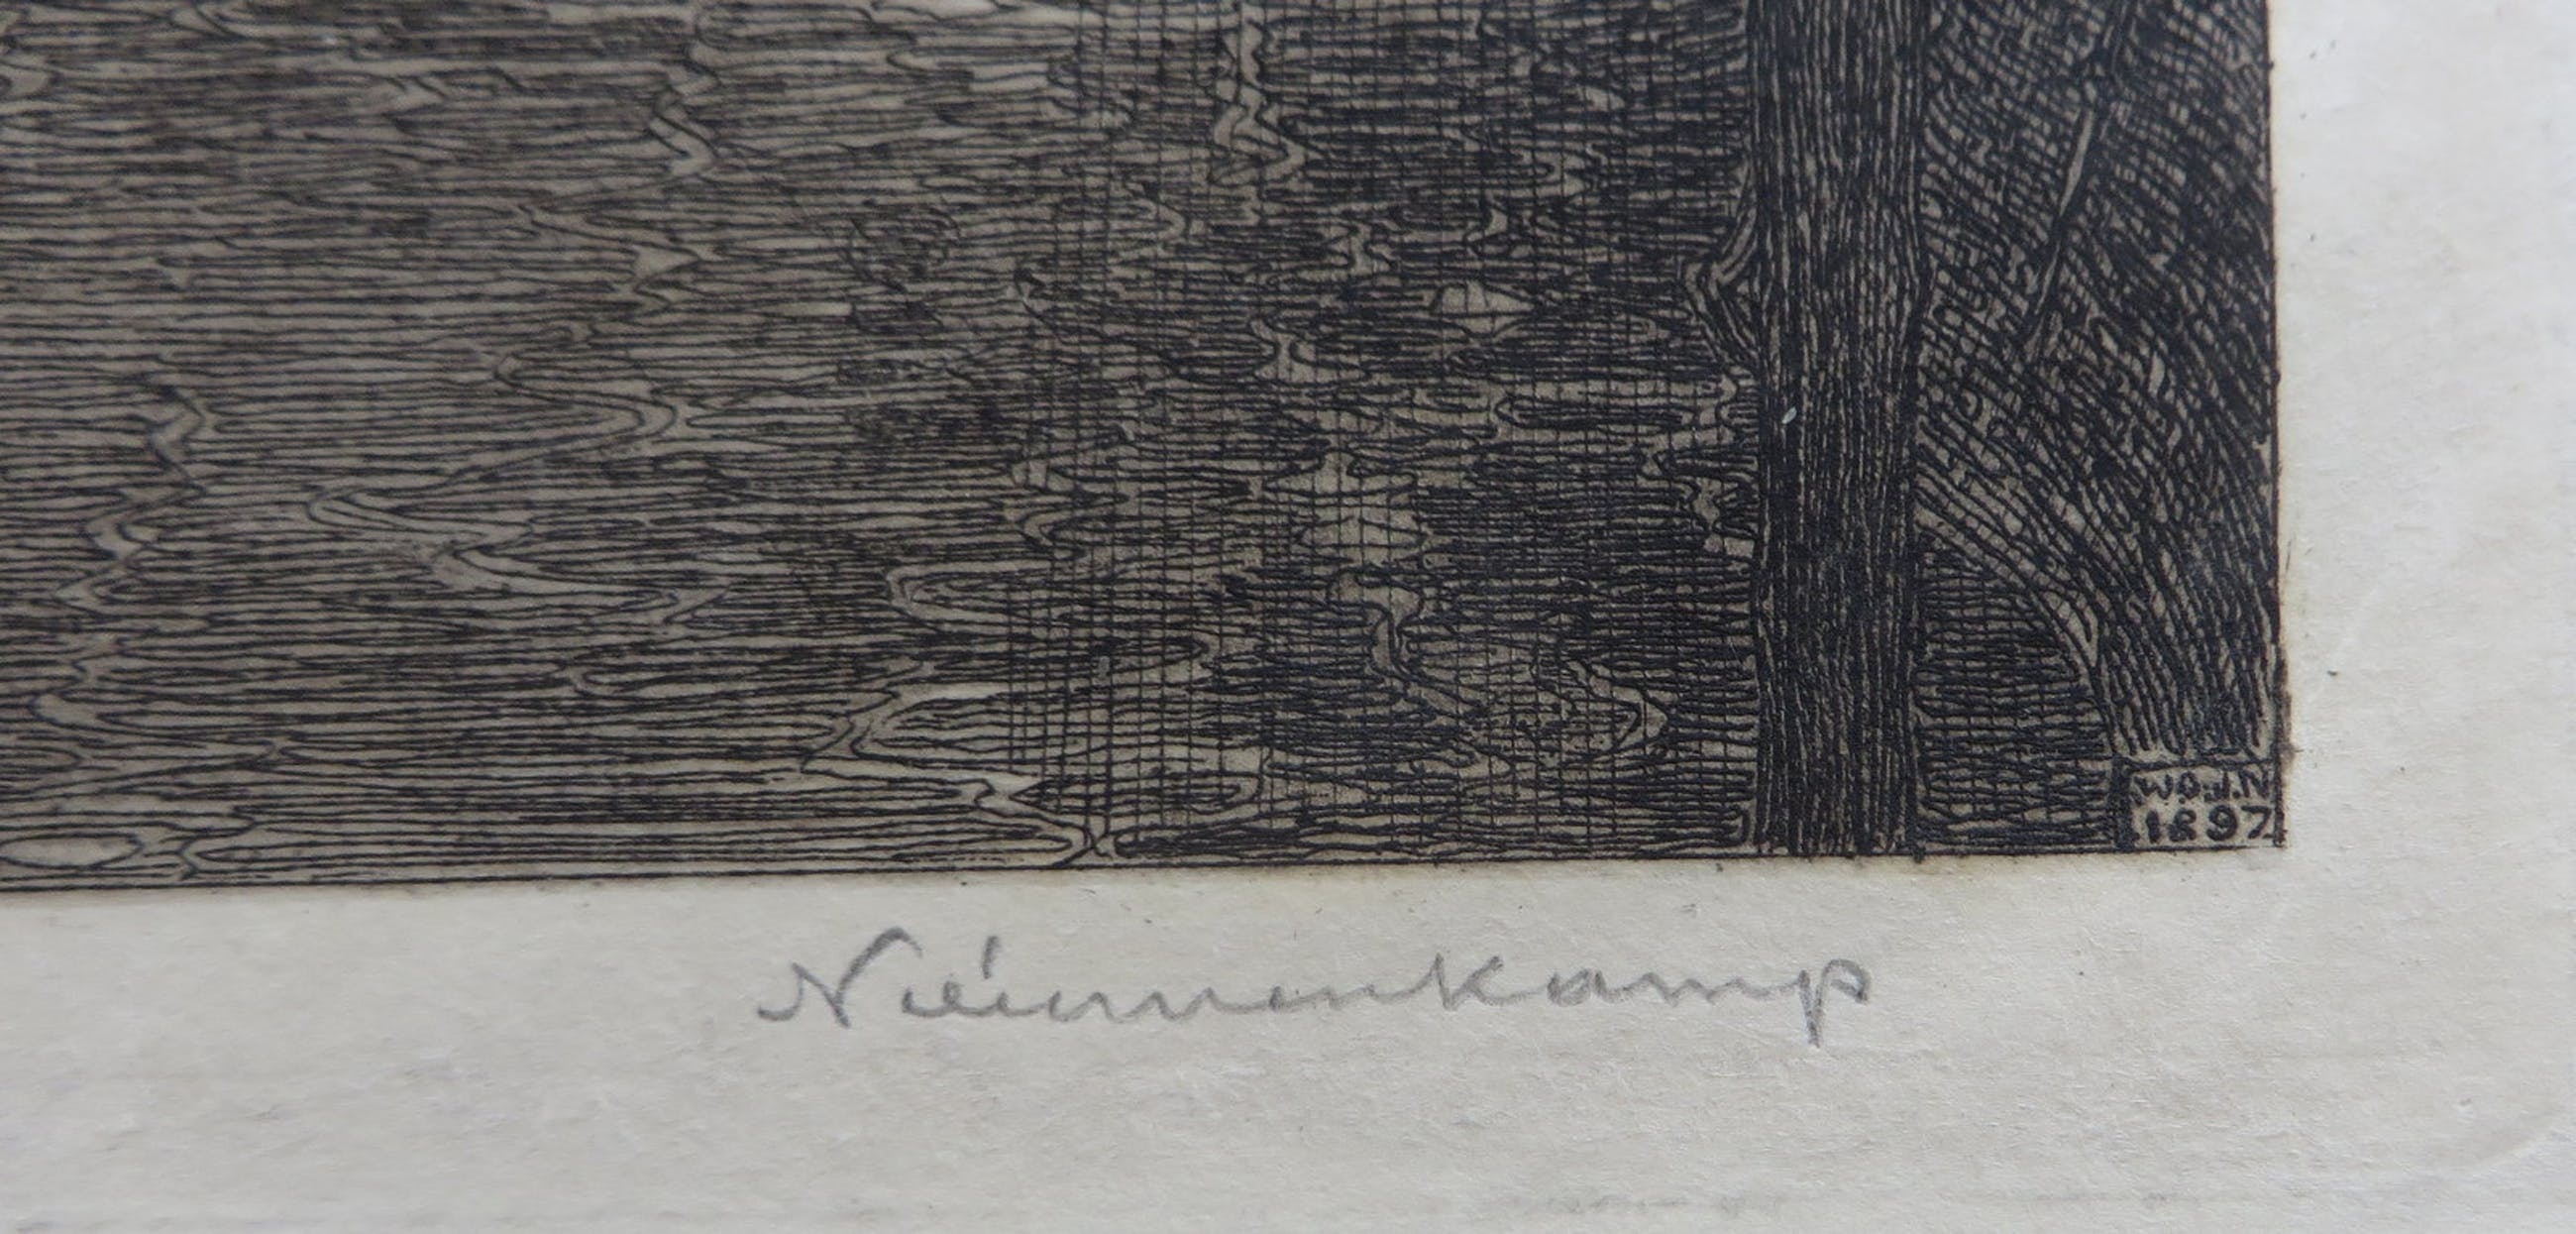 W.O.J.N
1897
Nieuwenkamp